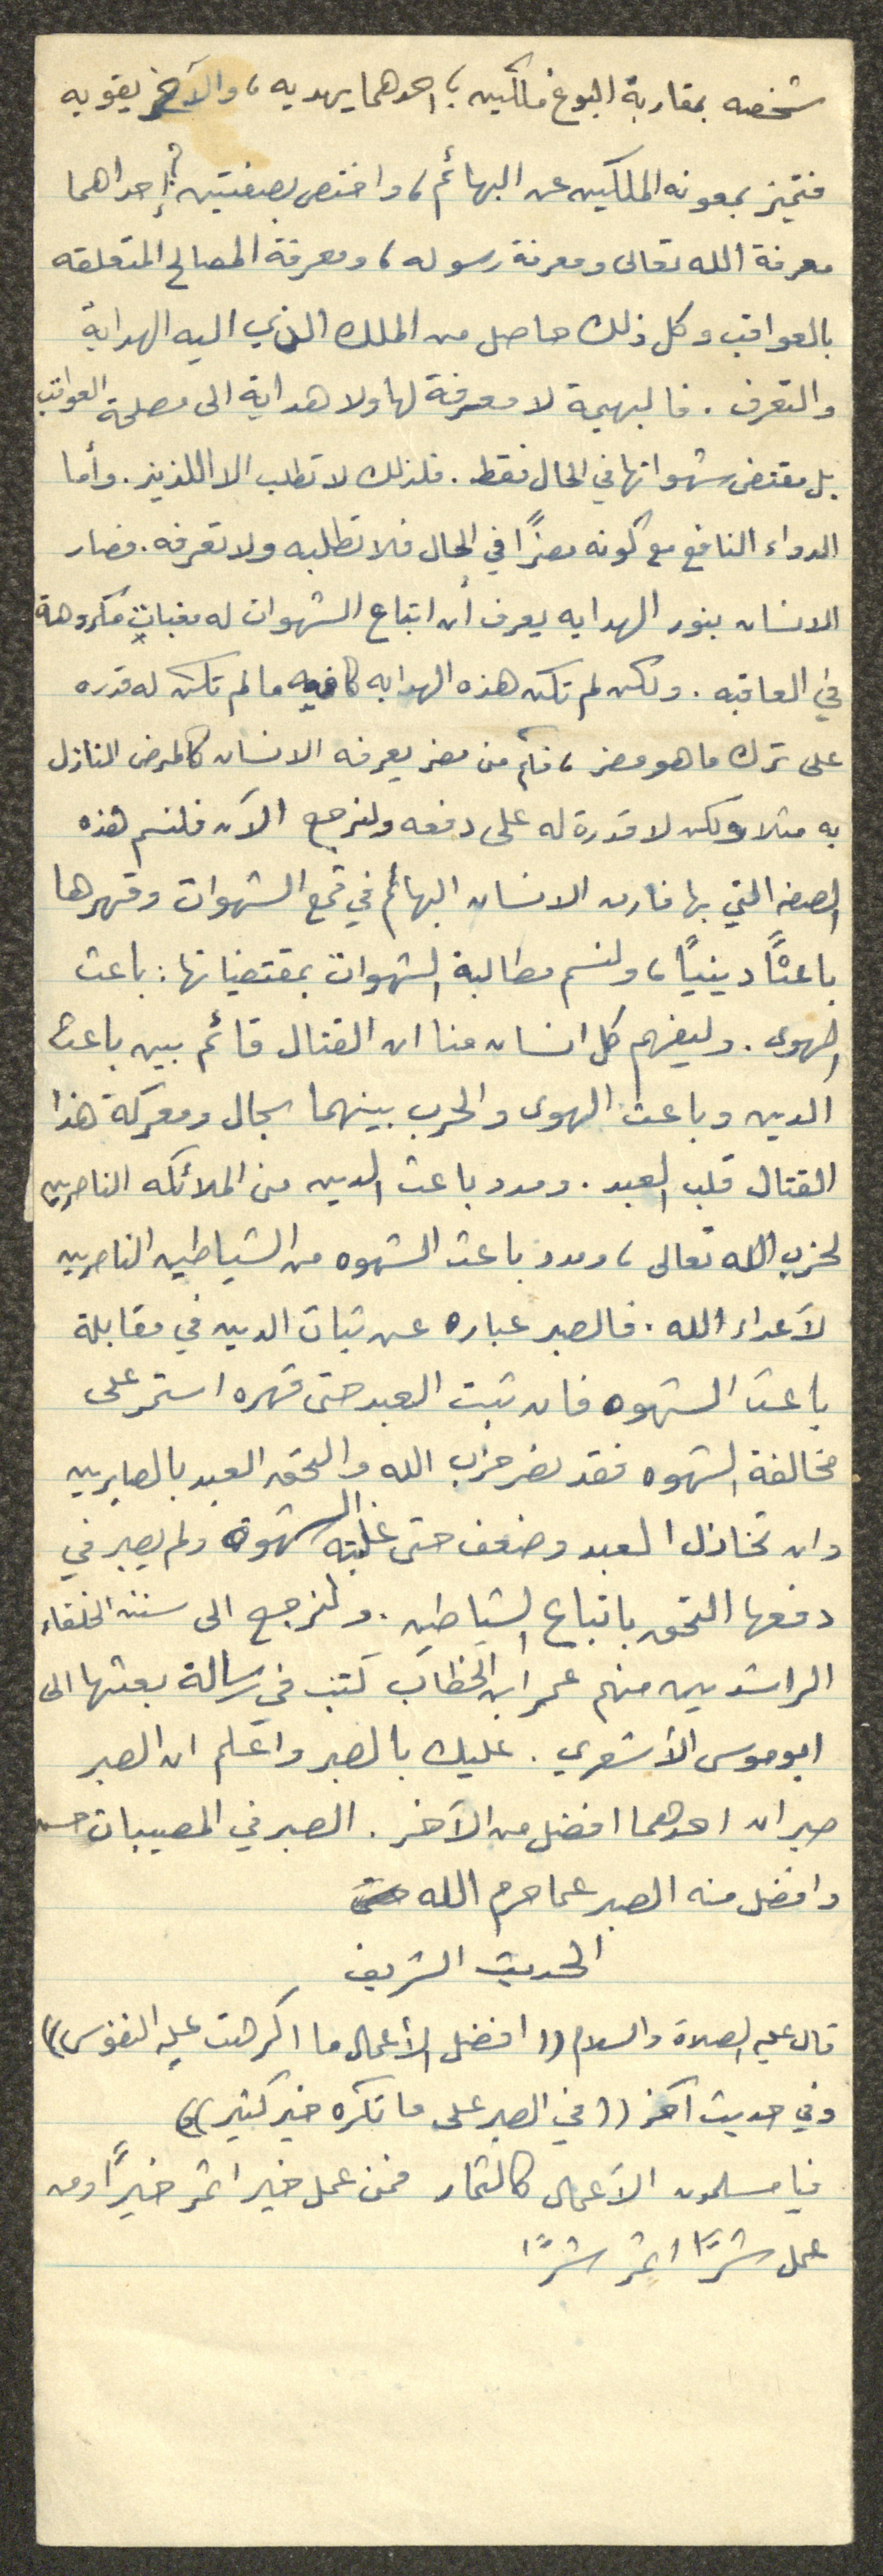 شخصه بمقاربة البلوغ ملكين ، احدهما يهديه ، والآخر يقويه
فتميز بمعونه الملكين عن البهائم ، واختص بصفتين ؟ إحداهما
معرفة الله تعالى ومعرفة رسوله ، ومعرفة المصالح المتعلقه
بالعواقب وكل ذلك حاصل من الملك الذي اليه الهداية
والتعرف . فالبهيمة لا معرفة لها ولا هداية الى مصلحة العواقب
بل مقتضى شهواتها في الحال فقط . فلذلك لا تطلب الا اللذيذ . وأما
الدواء النافع مع كونه مضرًا في الحال فلا تطلبه ولا تعرفه . فصار
الانسان بنور الهدايه يعرف أن اتباع الشهوات له مغبات مكروهة
في العاقبه . ولكن لم تكن هذه الهدايه كافيه ما لم تكن له قدره
على ترك ما هو مضر ، فكم من مضر يعرفه الانسان كالمرض النازل
به مثلا ولكن لا قدرة له على دفعه ولنرجع الآن فلنسم هذه
الصفه التي بها فارق الانسان البهائم في قمع الشهوات وقهرها
باعثًا دينيًا ، ولنسم مطالبة الشهوات بمقتضياتها : باعث
الهوى . وليفهم كل انسان منا ان القتال قائم بين باعث
الدين وباعث الهوى والحرب بينهما سجال ومعركة هذا
القتال قلب العبد . ومدد باعث الدين من الملائكه الناصرين
لحزب الله تعالى ، ومدد باعث الشهوه من الشياطين الناصرين
لأعداء الله . فالصبر عباره عن ثبات الدين في مقابلة
باعث الشهوه فان ثبت العبد حتى قهره استمر على
مخالفة الشهوه فقد نصر حزب الله والتحق العبد بالصابرين
وان تخاذل العبد وضعف حتى غلبته الشهوة ولم يصبر في
دفعها التحق باتباع الشياطين . ولنرجع الى سنن الخلفاء
الراشدين منهم عمر ابن الخطاب كتب في رسالة بعثها الى
ابو موسى الأشعري . عليك بالصبر واعلم ان الصبر
صبران احدهما افضل من الآخر . الصبر في المصيبات حسن
وافضل منه الصبر عما حرم الله
الحديث الشريف
قال عليه الصلاة والسلام (( افضل الأعمال ما اكرهت عليه النفوس ))
وفي حديث آخر (( في الصبر على ما تكره خير كثير ))
فيا مسلمون الأعمال كالثمار فمن عمل خيرا اثمر خيرًا ومن
عمل شرًا اثمر شرًا